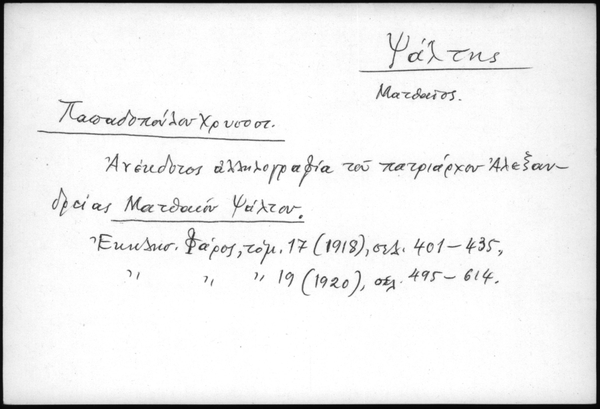 Ψάλτης
Ματθαῖος.
Παπαδοπούλου Χρυσοστ.
Ἀνέκδοτος ἀλληλογραφία τοῦ πατριάρχου Ἀλεξαν-
δρείας Ματθαίου Ψάλτου.
Ἐκκλησ. Φάρος, τόμ. 17 (1918), σελ. 401-435,
〃 〃 〃 19 (1920), σελ. 495-614.